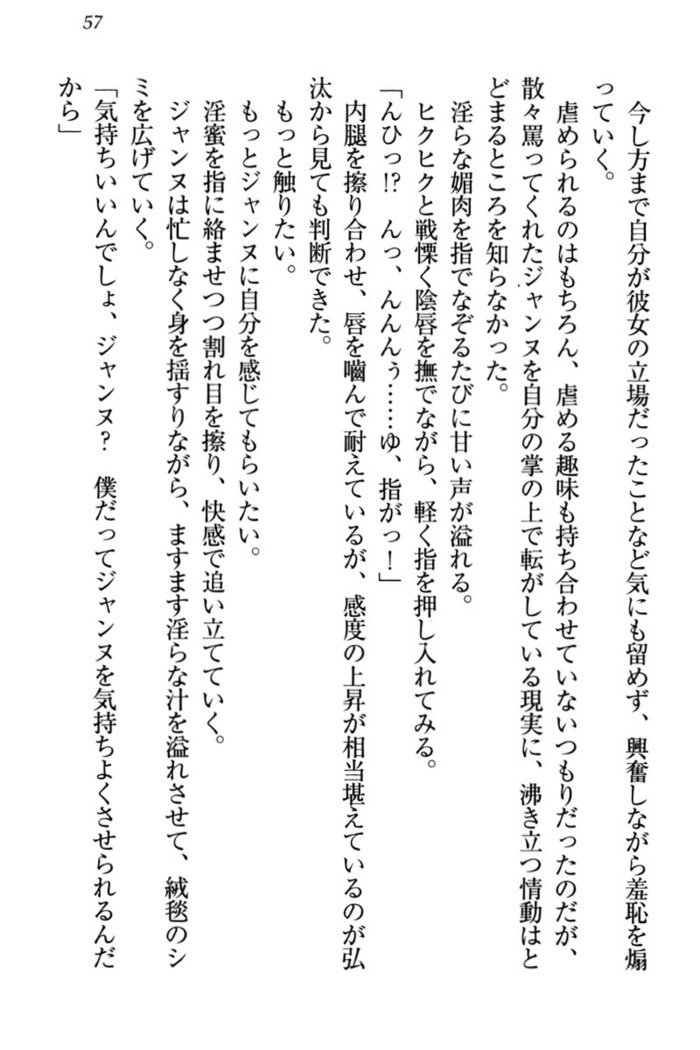 57
今し方まで自分が彼女の立場だったことなど気にも留めず、興奮しながら羞恥を煽
っていく。
虐められるのはもちろん、虐める趣味も持ち合わせていないつもりだったのだが、
散々罵ってくれたジャンヌを自分の掌の上で転がしている現実に、沸き立つ情動はと
どまるところを知らなかった。
淫らな媚肉を指でなぞるたびに甘い声が溢れる。
ヒクヒクと戦慄く陰唇を撫でながら、軽く指を押し入れてみる。
「んひっ!?　んっ、んんんぅ……ゆ、指がっ！」
内腿を擦り合わせ、唇を噛んで耐えているが、感度の上昇が相当堪えているのが弘
汰から見ても判断できた。
もっと触りたい。
もっとジャンヌに自分を感じてもらいたい。
淫蜜を指に絡ませつつ割れ目を擦り、快感で追い立てていく。
ジャンヌは忙しなく身を揺すりながら、ますます淫らな汁を溢れさせて、絨毯のシ
ミを広げていく。
「気持ちいいんでしょ、ジャンヌ？　僕だってジャンヌを気持ちよくさせられるんだ
から」